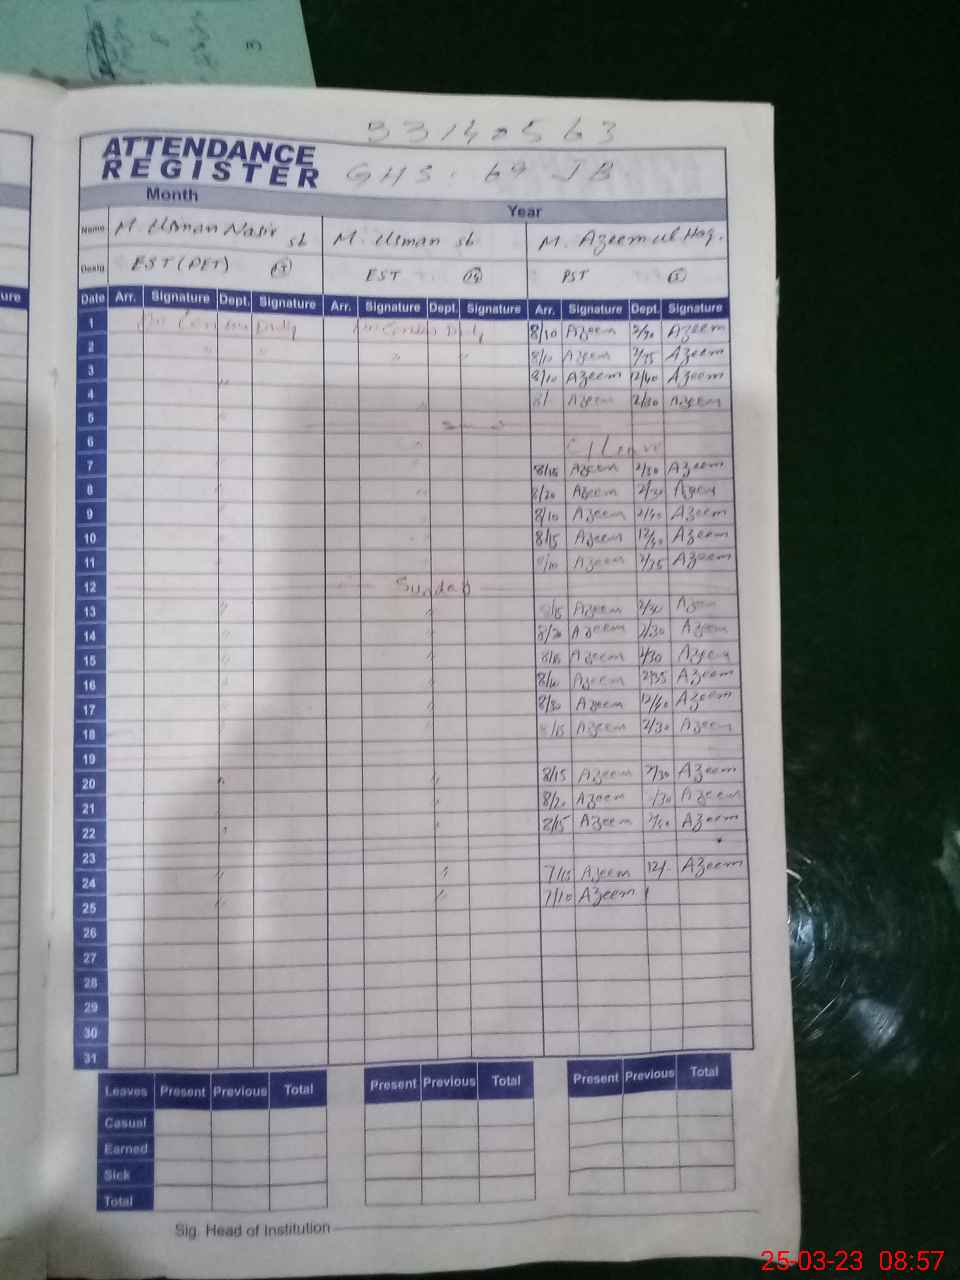 33140563
ATTENDANCE
REGISTER
GHS : 69 JB
Month
Year
Name M. Usman Nasir sb M. Usman sb M. Azeem ul Haq.
Desig EST (PET) EST PST
ure
Date Arr. Signature Dept. Signature Arr. Signature Dept. Signature Arr. Signature Dept. Signature
1 8/10 Azeem 2/30 Azeem
2 8/10 Azeem Azeem
3 8/10 Azeem 12/40 Azeem
4 8/ Azeem 2/30 Azeem
5
6 C/Leave
7 8/15 Azeem 2/30 Azeem
8 8/20 Azeem 2/30 Azeem
9 8/10 Azeem 2/40 Azeem
10 8/15 Azeem 12/30 Azeem
11 Azeem 2/35 Azeem
12 Sunday
13 8/15 Azeem 2/30 Azeem
14 8/20 Azeem 2/30 Azeem
15 Azeem 2/30 Azeem
16 Azeem 2/35 Azeem
17 8/30 Azeem 12/40 Azeem
18 8/15 Azeem 2/30 Azeem
19
20 8/15 Azeem 2/30 Azeem
21 8/20 Azeem /30 Azeem
22 8/15 Azeem Azeem
23
24 7/15 Azeem 12/ Azeem
25 7/10 Azeem
26
27
28
29
30
31
Leaves Present Previous Total Present Previous Total Present Previous Total
Casual
Earned
Sick
Total
Sig. Head of Institution
25-03-23 08:57